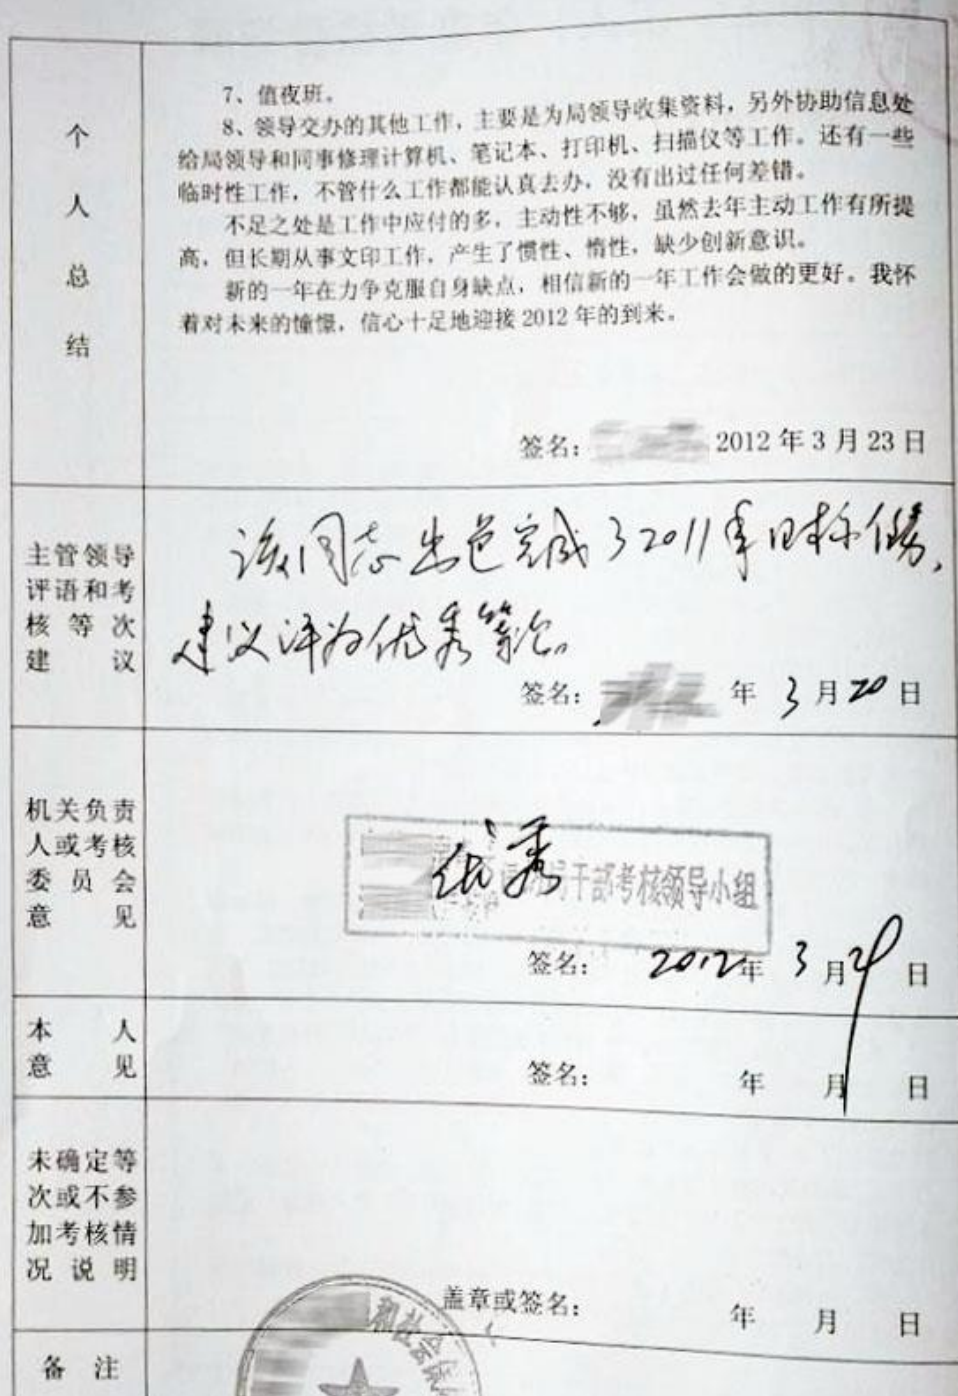 个人总结
7、值夜班。
8、领导交办的其他工作，主要是为局领导收集资料，另外协助信息处
给局领导和同事修理计算机、笔记本、打印机、扫描仪等工作。还有一些
临时性工作，不管什么工作都能认真去办，没有出过任何差错。
不足之处是工作中应付的多，主动性不够，虽然去年主动工作有所提
高，但长期从事文印工作，产生了惯性、惰性，缺少创新意识。
新的一年在力争克服自身缺点，相信新的一年工作会做的更好。我怀
着对未来的憧憬，信心十足地迎接2012年的到来。
签名： 2012年3月23日
主管领导
评语和考
核等次
建议
该同志出色完成了2011年目标任务，
建议评为优秀等次。
签名： 年3月20日
机关负责
人或考核
委员会
意见
优秀
干部考核领导小组
签名： 2012年3月 日
本人
意见
签名： 年 月 日
未确定等
次或不参
加考核情
况说明
盖章或签名： 年 月 日
和社会保
备注